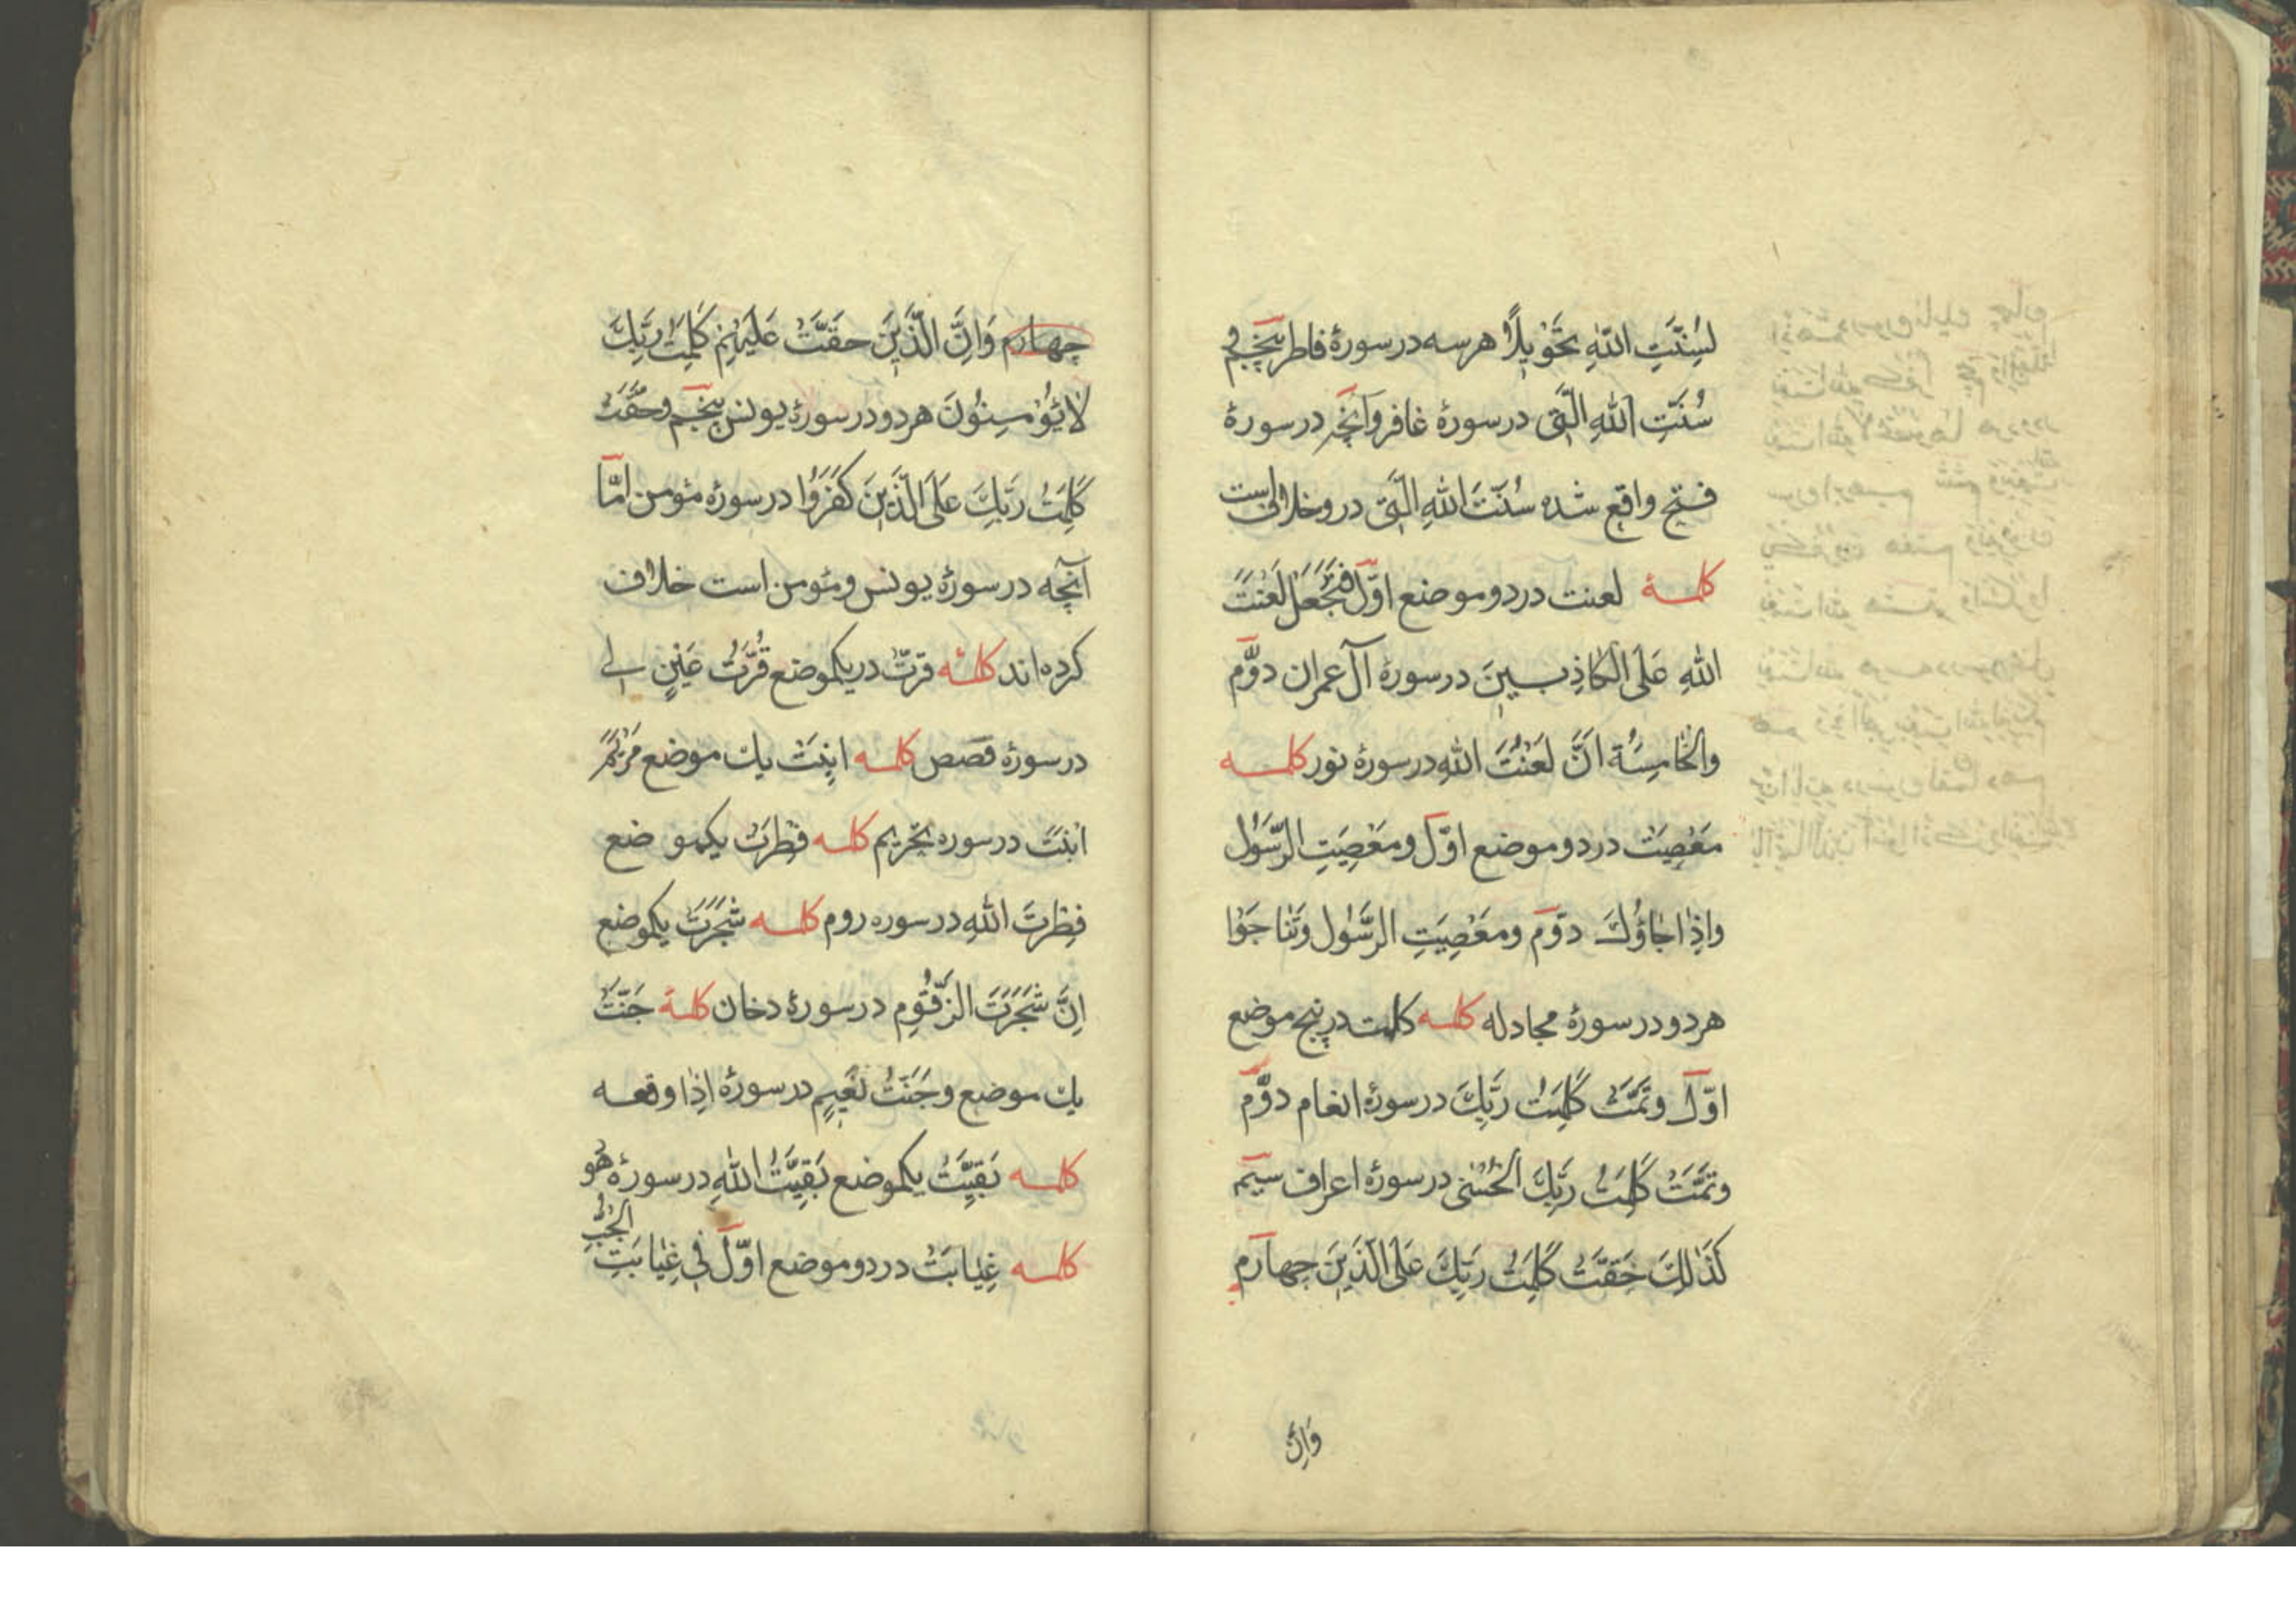 لِسُنَّتِ اللّٰهِ تَحْوِيلًا هرسه در سورۀ فاطر پنجم
سُنَّتِ اللّٰهِ الَّتِى در سورۀ غافر وآنچه در سورۀ
فتح واقع شده سُنَّتَ اللّٰهِ الَّتِى درو خلافی است
كلمۀ لعنت در دو موضع اوّل فَنَجْعَلْ لَعْنَتَ
اللّٰهِ عَلَى الْكَاذِبِينَ در سورۀ آل عمران دوّم
والْخَامِسَة اَنَّ لَعْنَتَ اللّٰهِ در سورۀ نور كلمه
مَعْصِيَتْ در دو موضع اوّل ومَعْصِيَتِ الرَّسُول
واِذٰا جٰاؤُكَ دوّم ومَعْصِيَتِ الرَّسُول وَتَنَاجَوْا
هر دو در سورۀ مجادله كلمه كلمت در پنج موضع
اوّل وتَمَّتْ كَلِمَتُ رَبِّكَ در سورۀ انعام دوّم
وتَمَّتْ كَلِمَتُ رَبِّكَ الْحُسْنٰى در سورۀ اعراف سیم
كَذٰلِكَ حَقَّتْ كَلِمَتُ رَبِّكَ عَلَى الَّذِينَ چهارم
وَاِنَّ
چهارم وَاِنَّ الَّذِينَ حقَّتْ عَلَيْهِمْ كَلِمَتُ رَبِّكَ
لٰا يُؤْمِنُونَ هر دو در سورۀ یونس پنجم وحَقَّتْ
كَلِمَتُ رَبِّكَ عَلَى الَّذِينَ كَفَرُوا در سورۀ مؤمن امّا
آنچه در سورۀ یونس ومؤمن است خلاف
كرده اند كلمۀ قرّت در یکموضع قُرَّتُ عَيْنٍ لِى
در سورۀ قصص كلمه ابنَتْ یك موضع مَرْيَمَ
ابْنَتَ در سوره تحریم كلمه فِطْرَتْ یکمو ضع
فِطْرَتَ اللّٰهِ در سوره روم كلمه شَجَرَتْ یکموضع
اِنَّ شَجَرَتَ الزَّقُّومِ در سورۀ دخان كلمۀ جَنَّتْ
یك موضع وجَنَّتُ نَعِيمٍ در سورۀ اِذٰا وقعه
كلمه بَقِيَّتْ یکموضع بَقِيَّتُ اللّٰهِ در سورۀ هُو
كلمه غِيَابَتْ در دو موضع اوّل فِى غِيَابَتِ الْجُبِّ